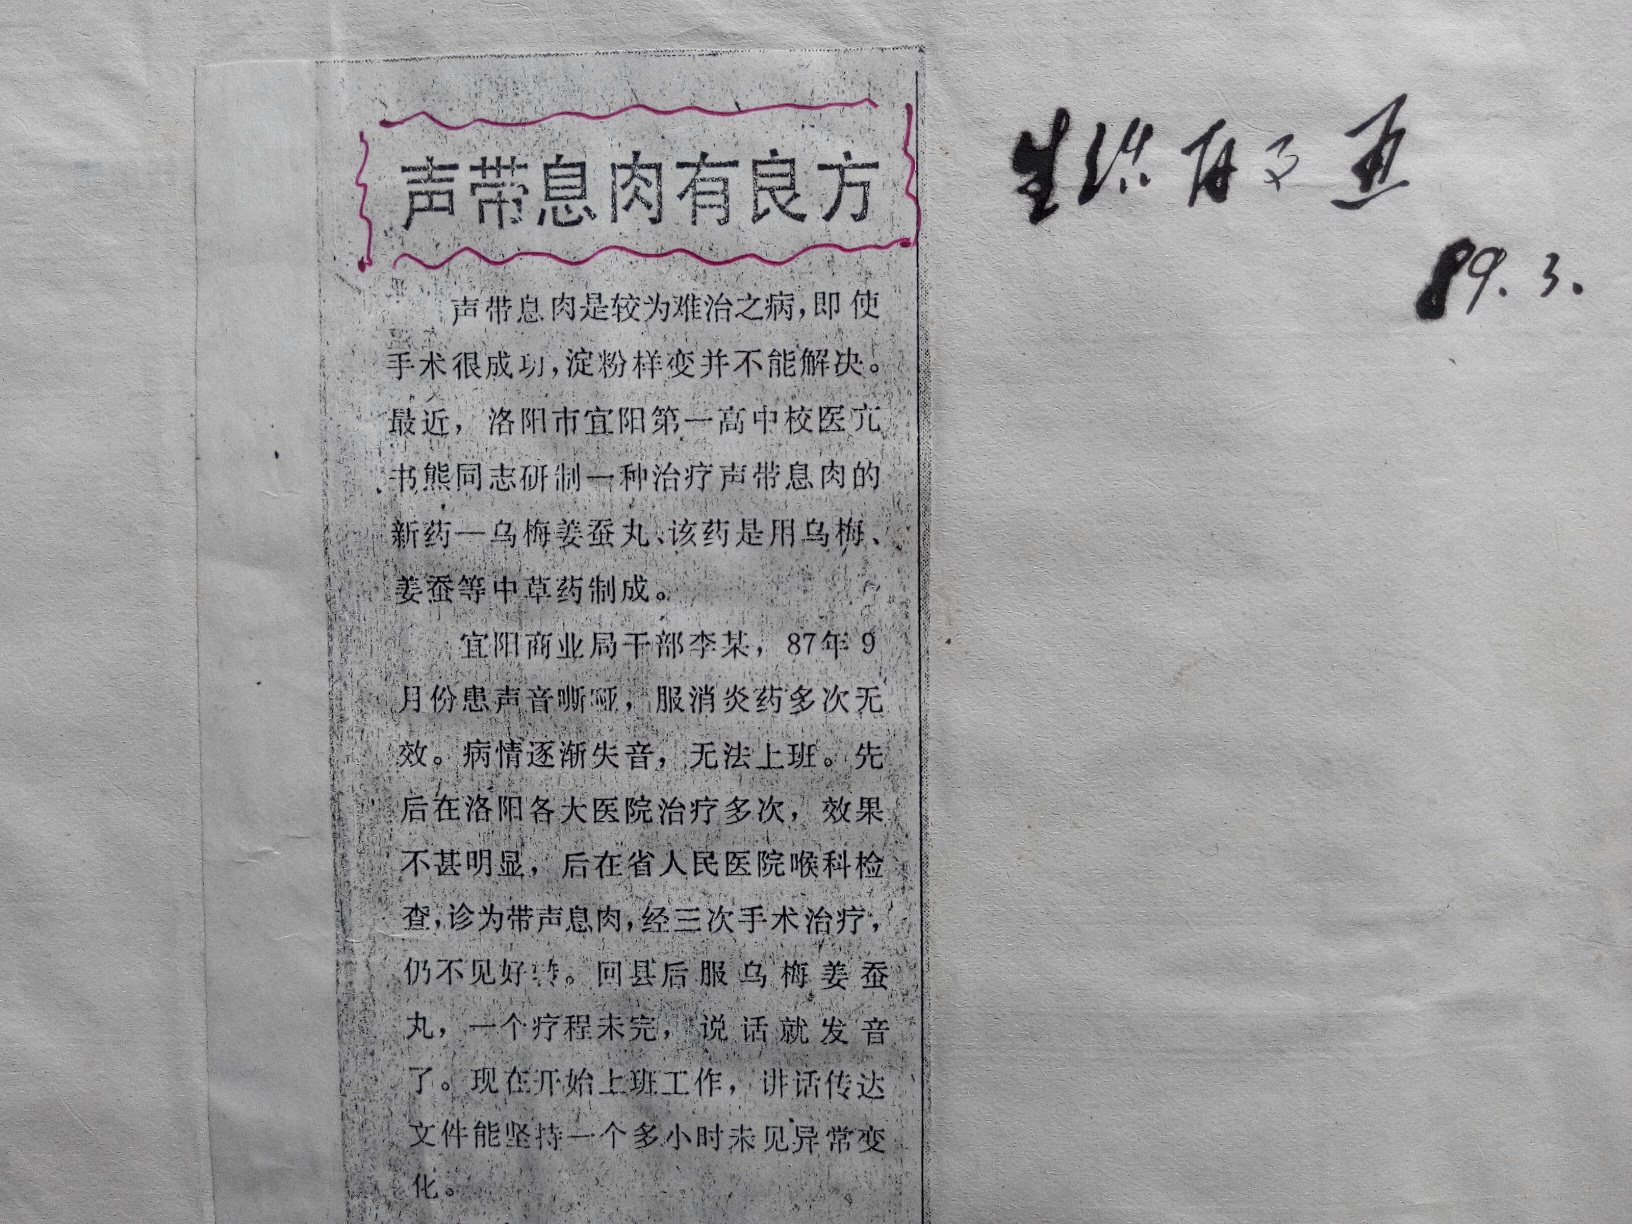 声带息肉有良方
声带息肉是较为难治之病，即使
手术很成功，淀粉样变并不能解决。
最近，洛阳市宜阳第一高中校医亢
书熊同志研制一种治疗声带息肉的
新药—乌梅姜蚕丸、该药是用乌梅、
姜蚕等中草药制成。
宜阳商业局干部李某，87年9
月份患声音嘶哑，服消炎药多次无
效。病情逐渐失音，无法上班。先
后在洛阳各大医院治疗多次，效果
不甚明显，后在省人民医院喉科检
查，诊为带声息肉，经三次手术治疗，
仍不见好转。回县后服乌梅姜蚕
丸，一个疗程未完，说话就发音
了。现在开始上班工作，讲话传达
文件能坚持一个多小时未见异常变
化。
89.3.